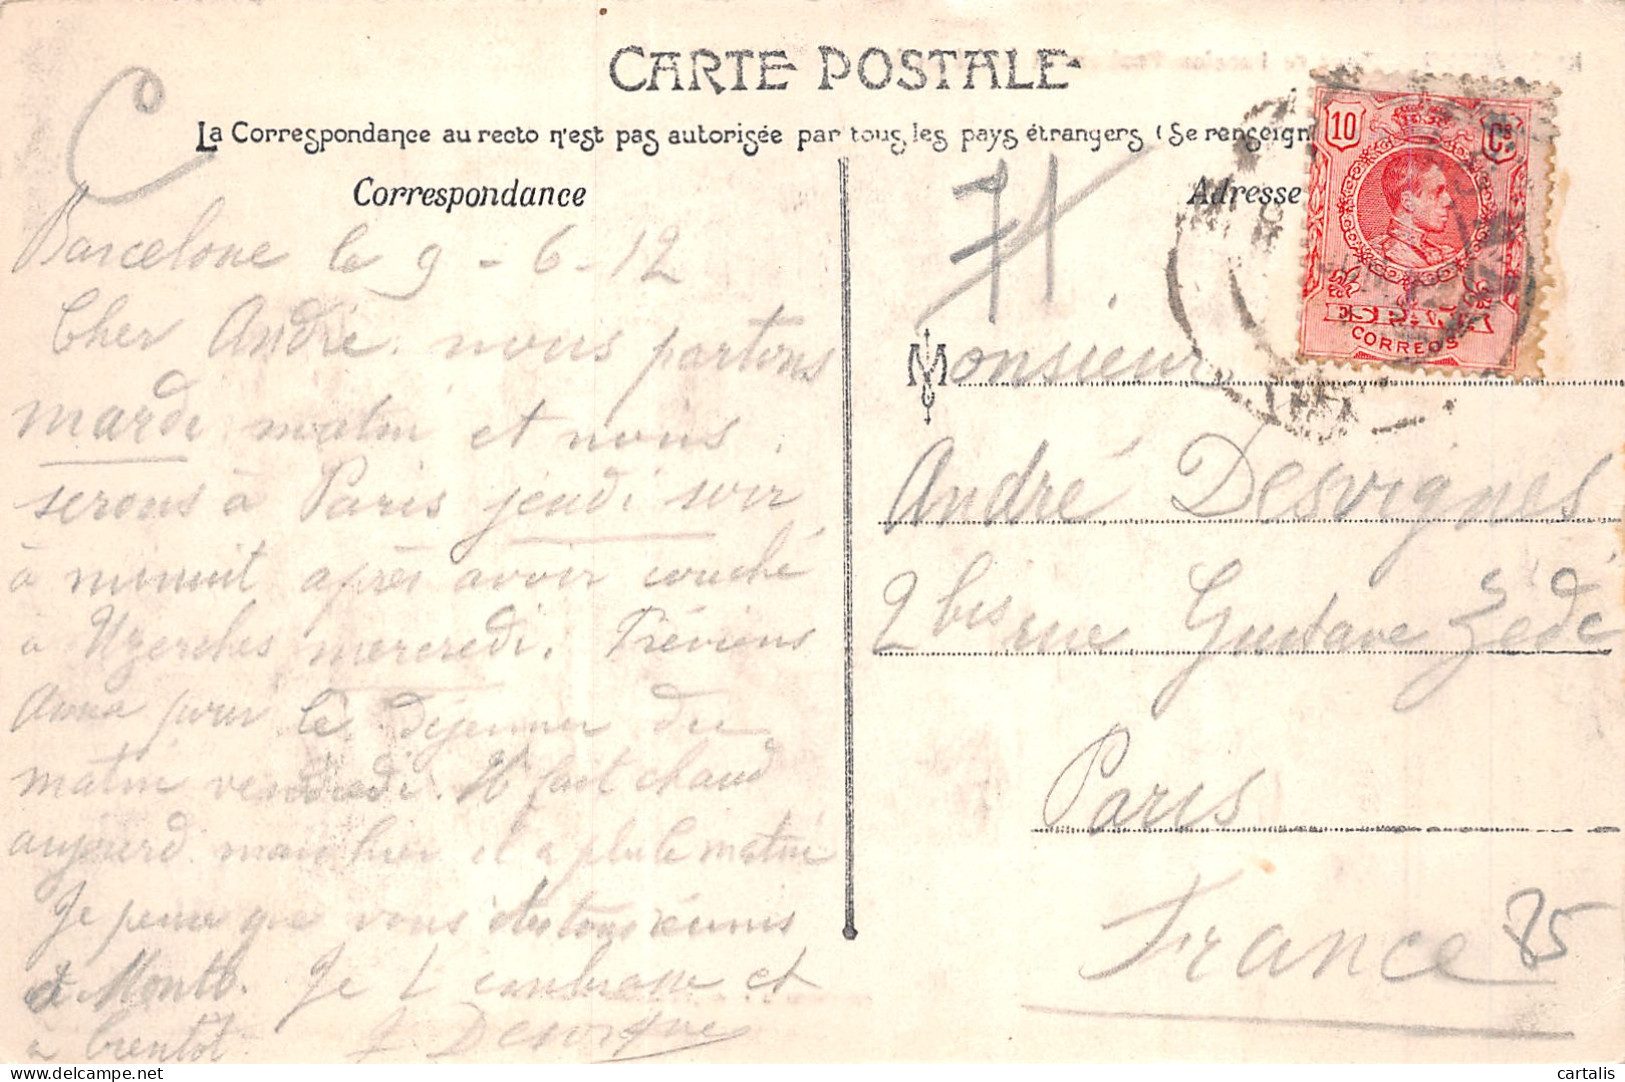 CARTE POSTALE
La Correspondance au recto n'est pas autorisée par tous les pays étrangers (Se renseign
Correspondance
Adresse
C
71
10 Cs
ESPAÑA
CORREOS
Barcelone le 9-6-12
Cher André. nous partons
mardi matin et nous
serons à Paris jeudi soir
à minuit après avoir couché
à Uzerches mercredi. Préviens
Anna pour le déjeuner du
matin vendredi. Il fait chaud
aujourd. mais hier il a plu le matin
Je pense que vous êtes tous réunis
à Montb. Je t'embrasse et
à bientôt J Desvignes
Monsieur
André Desvignes
2 bis rue Gustave Zédé
Paris
France
85
cartalis
delcampe.net